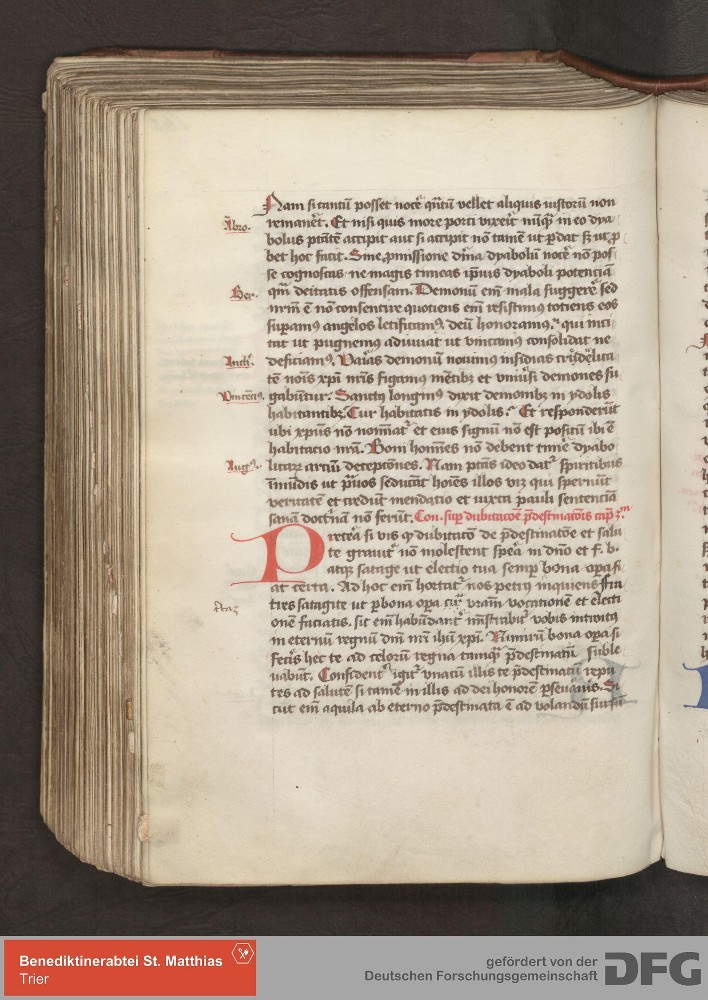 Nam si tantū posset nocē q̄ntū vellet aliquis iustorū non
remanēt. Et nisi quis more porci vixerit nūq̄ in eo dya
Ābro.
bolus ptātē accipit aut si accipit nō tamē ut ꝑdat sꝫ ut ꝓ
bet hoc facit. Sine ꝑmissione dīna dyabolū nocē nō pos
se cognoscas ne magis timeas ipsius dyaboli potenciā
Ber.
qm̄ deitatis offensam. Demonū em̄ mala suggerē sed
nr̄m ē nō consentire quotiens em̄ resistimꝰ totiens eos
suꝑamꝰ angelos letificamꝰ deū honoramꝰ qui inci
tat ut pugnemꝰ adiuuat ut vincamꝰ consolidat ne
deficiamꝰ. Varias demonū nouimꝰ insidias
tē nōis xpī nr̄is figamꝰ mētibꝫ et vniūsi demones fu
Vincēciꝰ.
gabūtur. Sanctꝰ longinꝰ dixit demonibꝫ in ydolis
habitantibꝫ. Cur habitatis in ydolis. Et responderūt
ubi xpūs nō noīatr̄ et eius signū nō est positū ibi ē
habitacio nr̄a. Boni homines nō debent timē dyabo
Augꝰ.
licaꝝ arciū decepcōnes. Nam ptās ideo datr̄ spiritibus
īmūdis ut prauos seducāt hoīes illos viꝫ qui spernūt
veritatē et credūt mendacio et iuxta pauli sentenciā
sanā doctⁱnā nō ferūt. Con. suꝑ dubitacōē p̄destinacōis cap̄
Pretēa si vis ꝙ dubitacō de p̄destinacōe et salu
te grauitr̄ nō molestent spēa in dn̄o et f. b.
atqꝫ satage ut electio tua semꝑ bona oꝑa si
at certa. Ad hoc em̄ hortatr̄ nos petrus inquiens fra
tres satagite ut ꝑ bona oꝑa vrām vocationē et electi
onē faciatis. sic em̄ habūdantr̄ mīstrabitr̄ vobis introitꝰ
in eternū regnū dn̄i nr̄i ihū xpī. Nimirū bona oꝑa si
fecīs hec te ad celorū regna tamqꝫ p̄destinatū suble
vabūt. Confidentr̄ igitr̄ vnacū illis te p̄destinatū repu
tes ad salutē si tamē in illis ad dei honorē ꝑseuāuis. Si
cut em̄ aquila ab eterno p̄destinata ē ad volandū sursū
Benediktinerabtei St. Matthias
Trier
gefördert von der
Deutschen Forschungsgemeinschaft
DFG